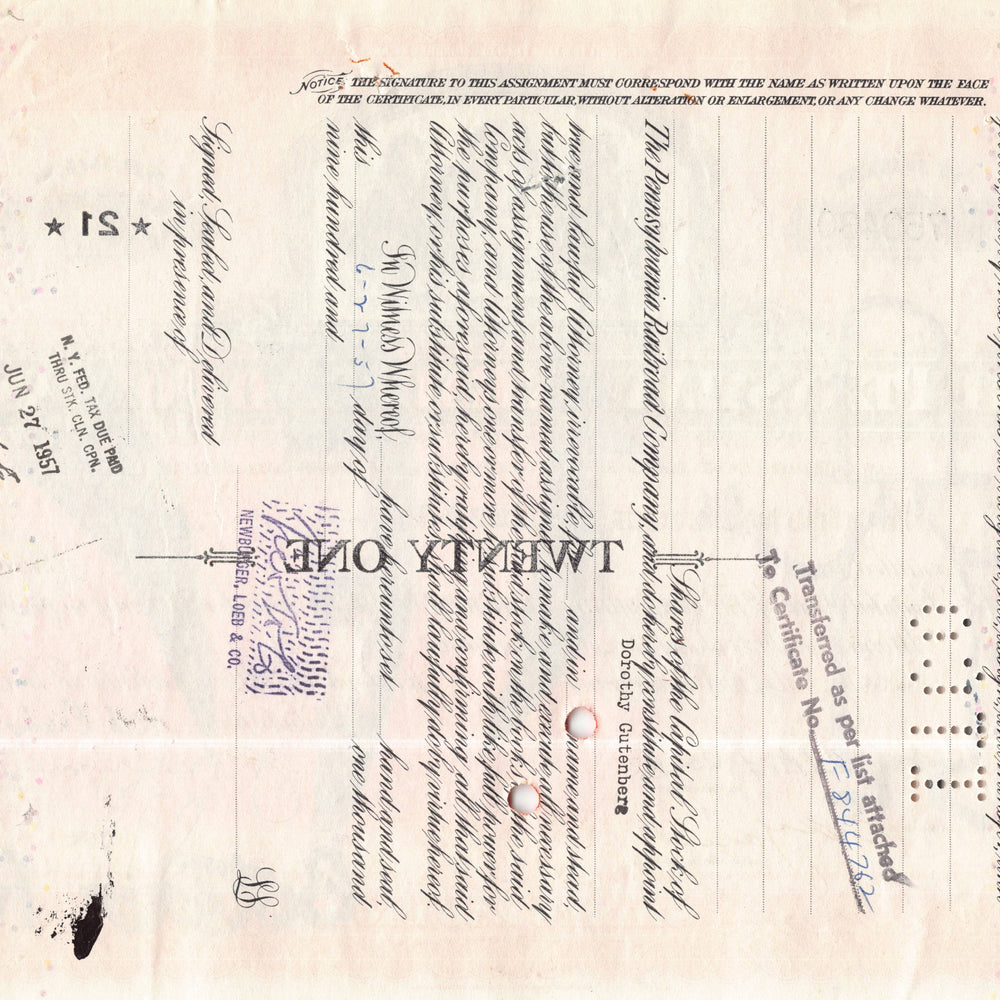 NOTICE. THE SIGNATURE TO THIS ASSIGNMENT MUST CORRESPOND WITH THE NAME AS WRITTEN UPON THE FACE
OF THE CERTIFICATE, IN EVERY PARTICULAR, WITHOUT ALTERATION OR ENLARGEMENT, OR ANY CHANGE WHATEVER.
Transferred as per list attached
To Certificate No. F844762
Shares of the Capital Stock of
The Pennsylvania Railroad Company, and do hereby constitute and appoint
Dorothy Gutenberg
true and lawful Attorney, irrevocable, for and in name and stead
but to the use of the above named assignee to make and execute all necessary
acts of assignment and transfer of the said stock on the books of the said
Company, and Attorneys one or more to substitute with like full power for
the purposes aforesaid, hereby ratifying and confirming all that said
Attorney, or his substitute or substitutes shall lawfully do by virtue hereof.
In Witness Whereof, have hereunto set hand and seal
this 6-27-57 day of one thousand
nine hundred and
Signed, Sealed and Delivered
in presence of
LS
NEWBORGER, LOEB & CO.
TWENTY ONE
★ 21 ★
N. Y. FED. TAX DUE PAID
THRU STK. CLN. CPN.
JUN 27 1957